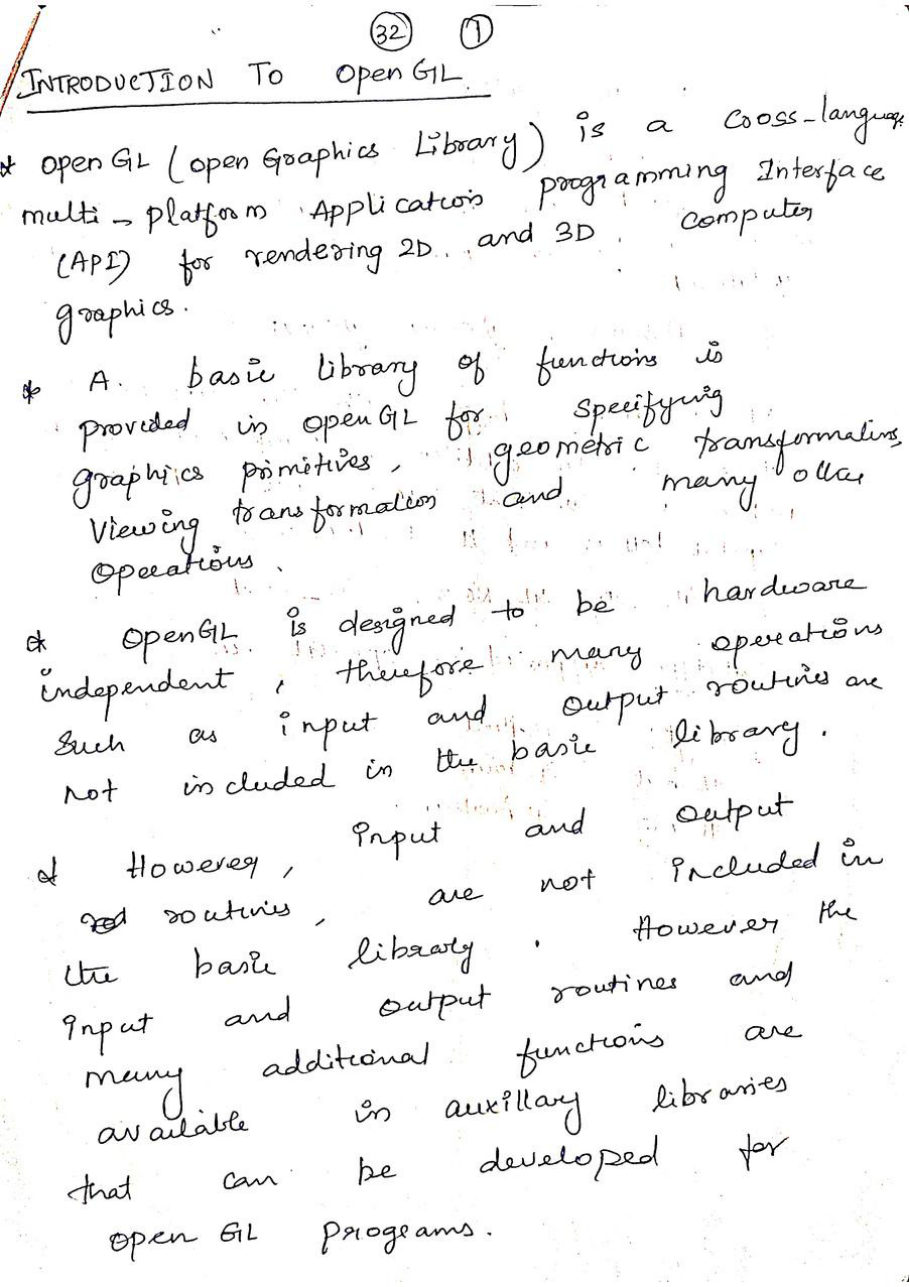 32 1
INTRODUCTION To OpenGL
* openGL (open Graphics Library) is a cross-language
multi-platform Application programming Interface
(API) for rendering 2D and 3D computer
graphics.
* A. basic library of functions is
provided in openGL for specifying
graphics primitives, geometric transformations,
Viewing transformation and many other
Operations.
* OpenGL is designed to be hardware
independent, therefore many operations
Such as input and output routines are
not included in the basic library.
* However, input and output
routines, are not included in
the basic library. However the
input and output routines and
many additional functions are
available in auxillary libraries
that can be developed for
open GL programs.